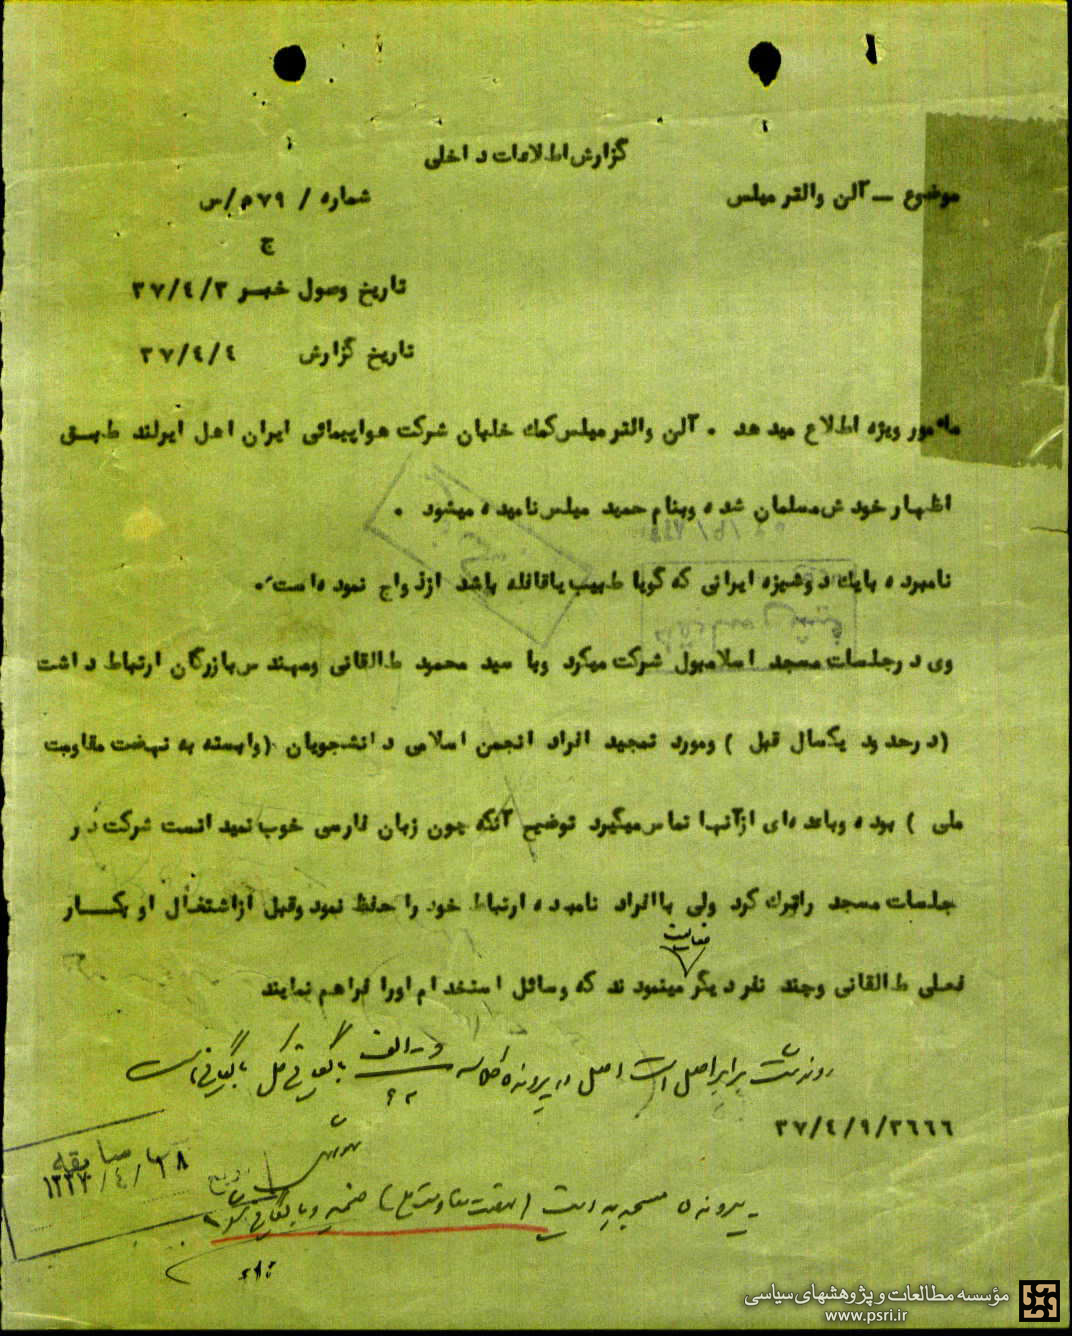 گزارش اطلاعات داخلی
موضوع ــ آلن والتر میلس
شماره / ۷۹م/س
ج
تاریخ وصول خبر ۳۷/٤/۳
تاریخ گزارش ۳۷/٤/٤
مأمور ویژه اطلاع میدهد . آلن والتر میلس کمک خلبان شرکت هواپیمائی ایران اهل ایرلند طبق
اظهار خودش مسلمان شده وبنام حمید میلس نامیده میشود .
نامبرده بایک دوشیزه ایرانی که گویا طبیب یاقابله باشد ازدواج نموده است .
وی درجلسات مسجد اسلامبول شرکت میکرد وبا سید محمود طالقانی ومهندس بازرگان ارتباط داشت
(درحدود یکسال قبل ) ومورد تمجید افراد انجمن اسلامی دانشجویان (وابسته به نهضت مقاومت
ملی ) بوده وباعده ای ازآنها تماس میگیرد توضیح آنکه چون زبان فارسی خوب نمیدانست شرکت در
جلسات مسجد راترک کرد ولی باافراد نامبرده ارتباط خود را حفظ نمود وقبل ازاشتغال او بکار
فعالیت
فعلی طالقانی وچند نفر دیگر مینمودند که وسائل استخدام اورا فراهم نمایند
رونوشت برابر اصل است اصل در پرونده
و ـ الف
۳۷/٤/۹/۳٦٦٦
سابقه
۱۸ /٤/ ۱۳۳۷
پرونده (نهضت مقاومت ملی) ضمیمه و بایگانی شود